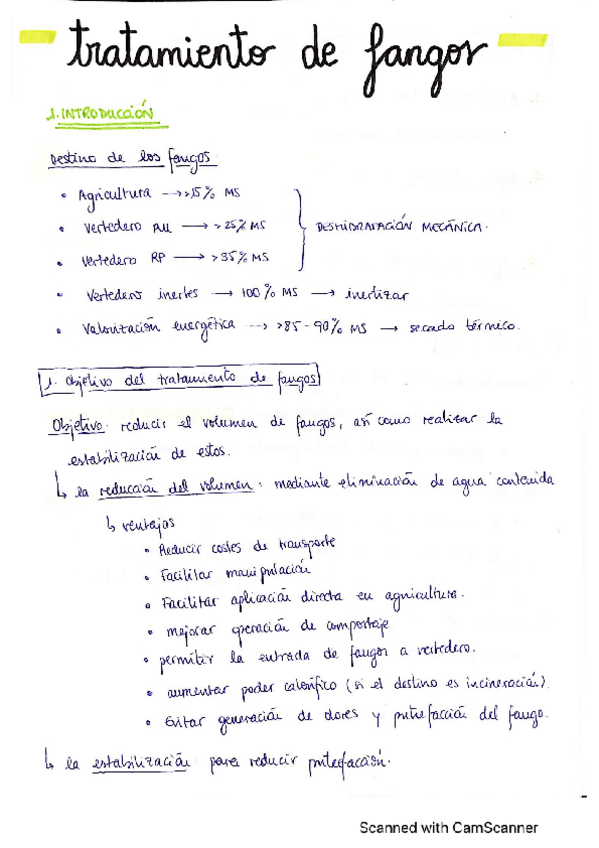 tratamiento de fangos
1. INTRODUCCIÓN
Destino de los fangos
• Agricultura --> >15% MS
• Vertedero RU → > 25% MS
DESHIDRATACIÓN MECÁNICA.
• Vertedero RP → > 35% MS
• Vertedero inertes → 100% MS → inertizar
• Valorización energética --> >85-90% MS → secado térmico.
1. Objetivo del tratamiento de fangos
Objetivo: reducir el volumen de fangos, así como realizar la
estabilización de estos.
↳ la reducción del volumen: mediante eliminación de agua contenida
↳ ventajas
• Reducir costes de transporte
• Facilitar manipulación
• Facilitar aplicación directa en agricultura.
• mejorar operación de compostaje
• permitir la entrada de fangos a vertedero.
• aumentar poder calorífico (si el destino es incineración).
• Evitar generación de olores y putrefacción del fango.
↳ la estabilización para reducir putrefacción.
Scanned with CamScanner